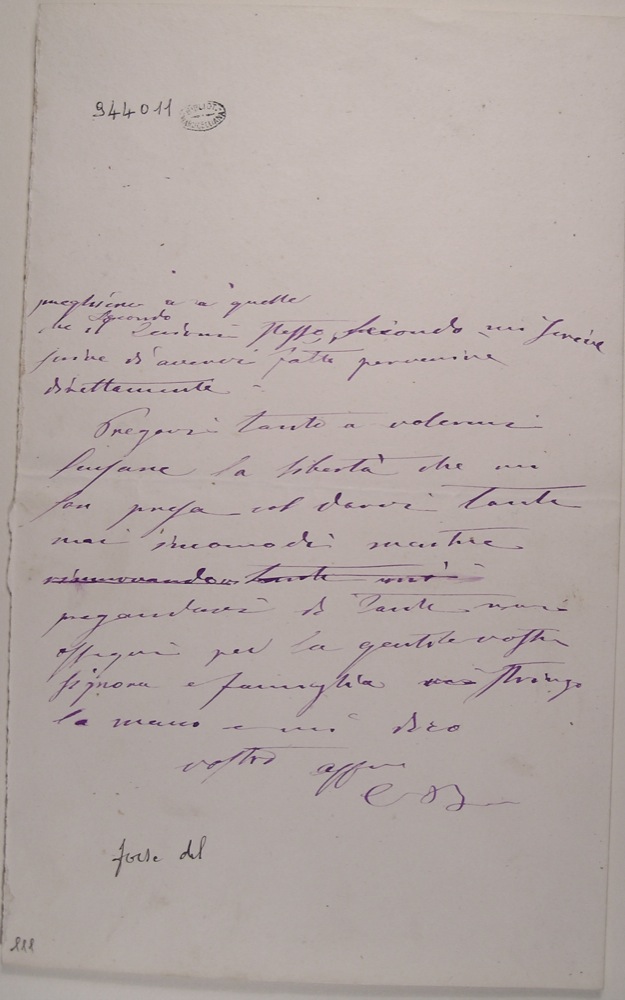 944011
BIBLIOT. MARUCELLIANA
preghiera a a quelle
Secondo
che il stesso, secondo mi scrive
d'avervi fatte pervenire
direttamente.
Pregovi tanto a volermi
scusare la libertà che mi
son presa col darvi tante
mai incomodi mentre
rinnovando tante
pregandovi di tante mai
ossequi per la gentile vostra
signora e famiglia vi stringo
la mano e mi dico
vostro affmo
forse del
111